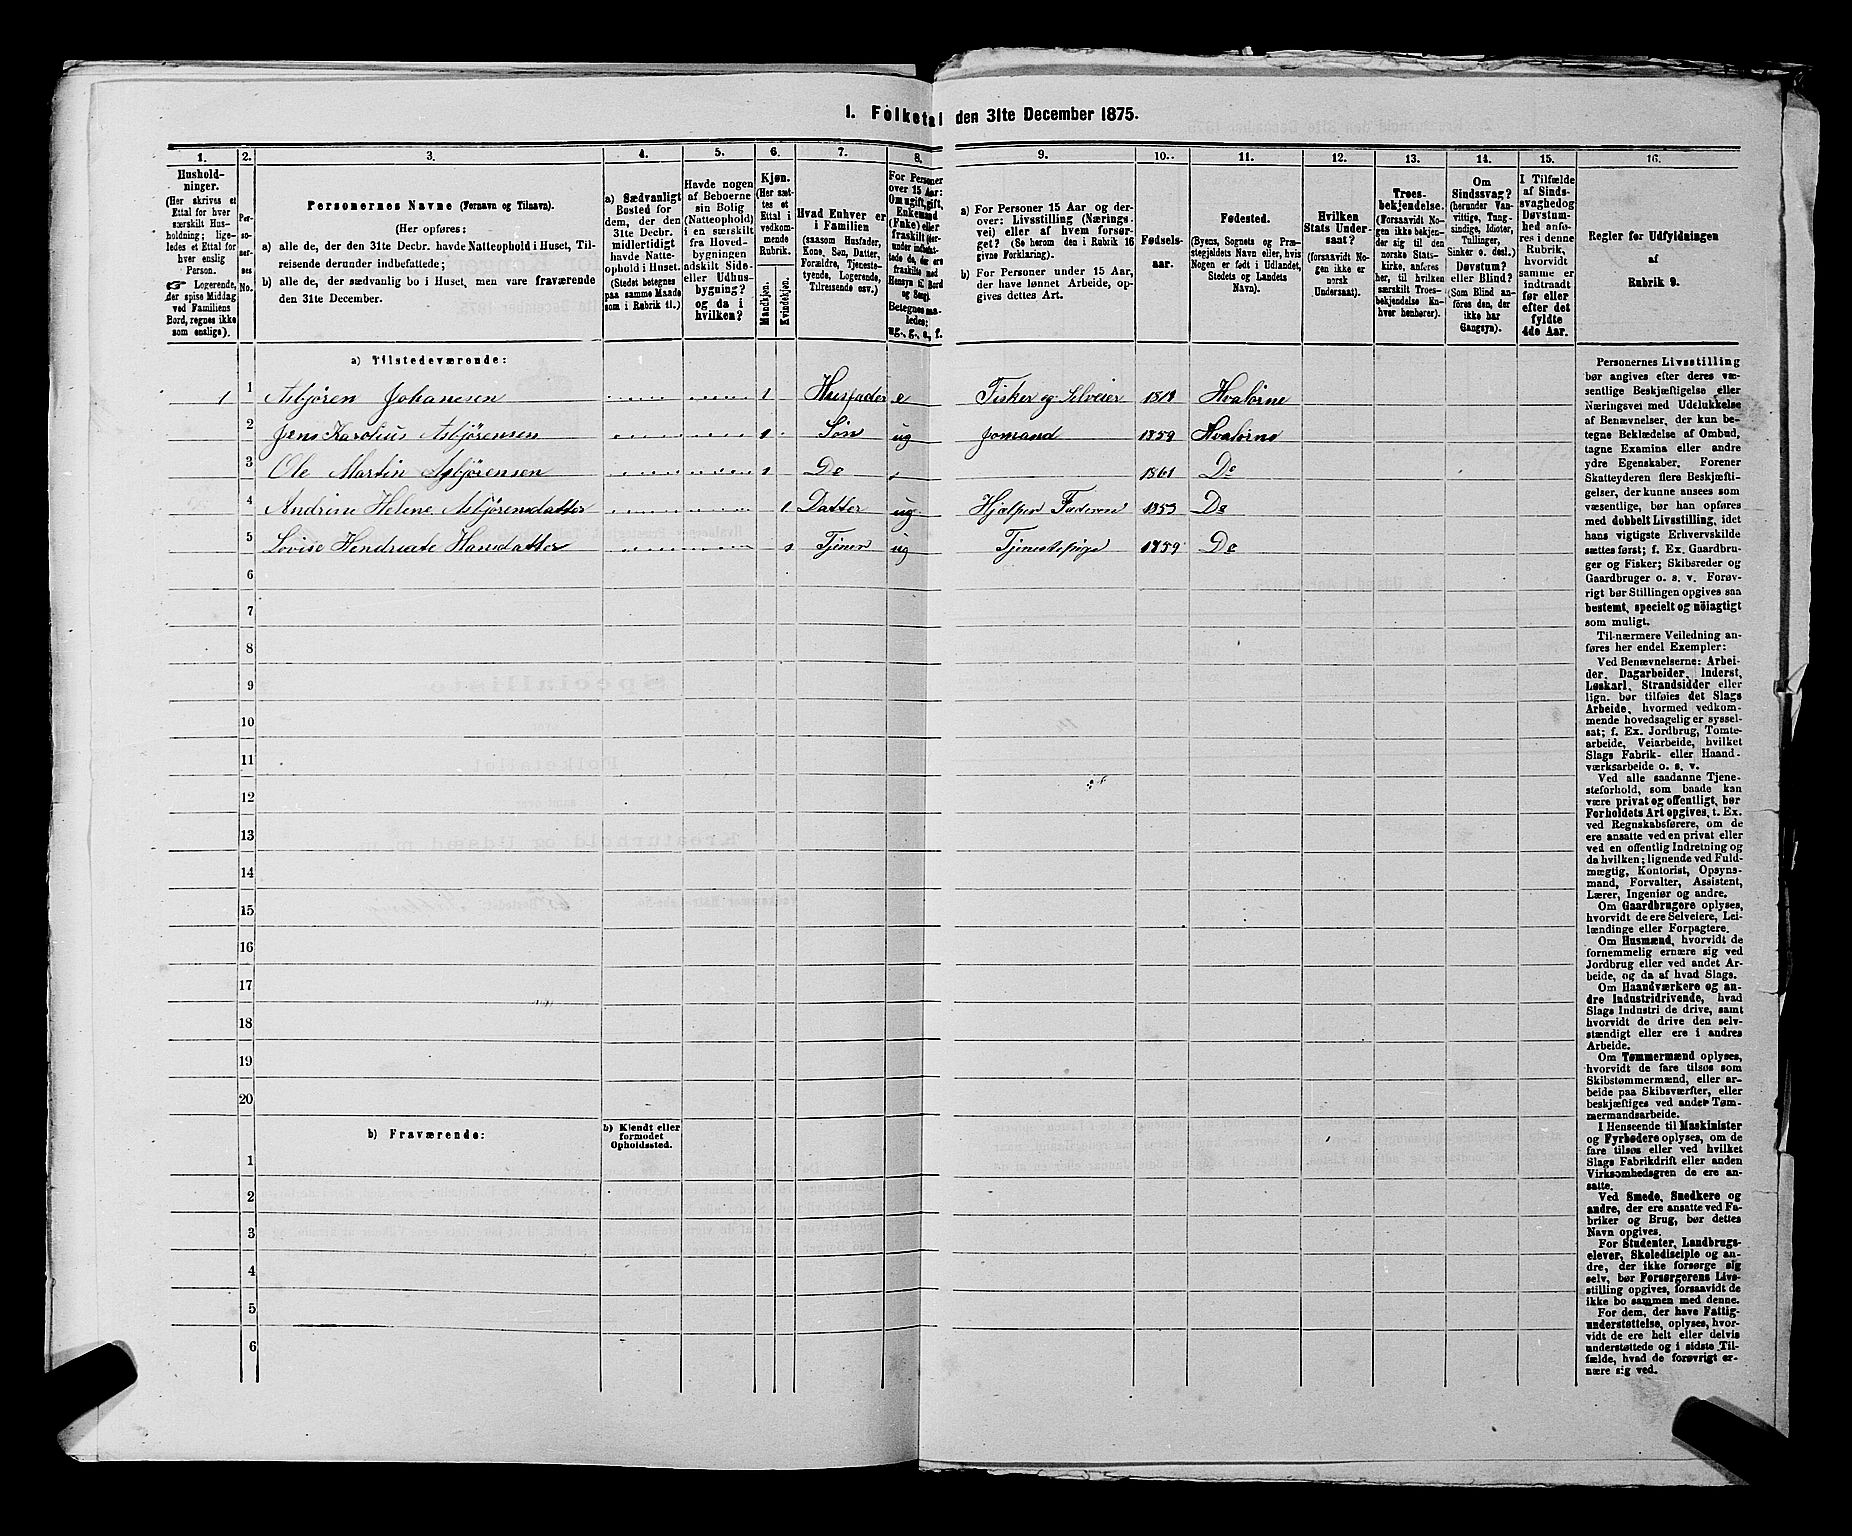 1. Folketal den 31te December 1875.
1. 2. 3. 4. 5. 6. 7. 8. 9. 10. 11. 12. 13. 14. 15. 16.
Hushold-
ninger.
(Her skrives et
Ettal for hver
særskilt Hus-
holdning; lige-
ledes et Ettal for
hver enslig
Person.
☞ Logerende,
der spise Middag
ved Familiens
Bord, regnes ikke
som enslige).
Per-
so-
ner-
nes
No.
Personernes Navne (Fornavn og Tilnavn).
(Her opføres:
a) alle de, der den 31te Decbr. havde Natteophold i Huset, Til-
reisende derunder indbefattede;
b) alle de, der sædvanlig bo i Huset, men vare fraværende
den 31te December.
a) Sædvanligt
Bosted for
dem, der den
31te Decbr.
midlertidigt
havde Natte-
ophold i Huset.
(Stedet betegnes
paa samme Maade
som i Rubrik 11.)
Havde nogen
af Beboerne
sin Bolig
(Natteophold)
i en særskilt
fra Hoved-
bygningen
adskilt Side-
eller Udhus-
bygning?
og da i
hvilken?
Kjøn.
(Her sæt-
tes et
Ettal i
vedkom-
mende
Rubrik.
Mandkjøn.
Kvindekjøn.
Hvad Enhver er
i Familien
(saasom Husfader,
Kone, Søn, Datter,
Forældre, Tjeneste-
tyende, Logerende,
Tilreisende osv.)
For Personer
over 15 Aar:
Om ugift, gift,
Enkemand
(Enke) eller
fraskilt
Betegnes saa-
ledes:
ug., g., e., f.
a) For Personer 15 Aar og der-
over: Livsstilling (Nærings-
vei) eller af hvem forsør-
get? (Se herom den i Rubrik 16
givne Forklaring).
b) For Personer under 15 Aar,
der have lønnet Arbeide, op-
gives dettes Art.
Fødsels-
aar.
Fødested.
(Byens, Sognets og Præ-
stegjeldets Navn eller, hvis
Nogen er født i Udlandet,
Stedets og Landets
Navn).
Hvilken
Stats Under-
saat?
(forsaavidt No-
gen ikke er
norsk
Undersaat).
Troes-
bekjendelse.
(Forsaavidt No-
gen ikke bekjen-
der sig til den
norske Stats-
kirke, anføres
her, til hvilken
særskilt Troes-
bekjendelse En-
hver henhører).
Om
Sindssvag?
(herunder Van-
vittige, Tung-
sindige, Idioter,
Tullinger,
Sinker o. desl.)
Døvstum?
eller Blind?
(Som Blind an-
føres den, der
ikke har
Gangsyn).
I Tilfælde
af Sinds-
svaghed og
Døvstum-
hed anfø-
res i denne
Rubrik,
hvorvidt
samme er
indtraadt
før eller
efter det
fyldte
4de Aar.
Regler for Udfyldningen
af
Rubrik 9.
a) Tilstedeværende:
1 1 Asbjören Johanesen 1 Husfader e Fisker og Selveier 1818 Hvalörne
2 Jens Karolius Asbjörensen 1 Sön ug Jomand 1859 Hvalörne
3 Ole Martin Asbjörensen 1 Do 1861 Do
4 Andrine Helene Asbjörensdatter 1 Datter ug Hjælper Faderen 1853 Do
5 Lovise Hansdatter 1 Tjener ug Tjenestepige 1859 Do
6
7
8
9
10
11
12
13
14
15
16
17
18
19
20
b) Fraværende:
b) Kjendt eller
formodet
Opholdssted.
1
2
3
4
5
6
Personernes Livsstilling
bør angives efter deres væ-
sentlige Beskjæftigelse eller
Næringsvei med Udelukkelse
af Benævnelser, der kun be-
tegne Beklædelse af Ombud,
tagne Examina eller andre
ydre Egenskaber. Forener
Skatteyderen flere Beskjæfti-
gelser, der kunne ansees som
væsentlige, bør han opføres
med dobbelt Livsstilling, idet
hans vigtigste Erhvervskilde
sættes først; f. Ex. Gaardbru-
ger og Fisker; Skibsreder og
Gaardbruger o. s. v. Forøv-
rigt bør Stillingen opgives saa
bestemt, specielt og nöiagtigt
som muligt.
Til nærmere Veiledning an-
føres her endel Exempler:
Ved Benævnelserne: Arbei-
der, Dagarbeider, Inderst,
Løskarl, Strandsidder eller
lign. bør tilføies det Slags
Arbeide, hvormed vedkom-
mende hovedsagelig er syssel-
sat; f. Ex. Jordbrug, Tomte-
arbeide, Veiarbeide, hvilket
Slags Fabrik- eller Haand-
værksarbeide o. s. v.
Ved alle saadanne Tjene-
steforhold, som baade kan
være privat og offentligt, bør
Forholdets Art opgives, t. Ex.
ved Regnskabsførere, om de
ere ansatte ved en privat eller
ved en offentlig Indretning og
da hvilken; lignende ved Fuld-
mægtig, Kontorist, Opsyns-
mand, Forvalter, Assistent,
Lærer, Ingeniør og andre.
Om Gaardbrugere oplyses,
hvorvidt de ere Selveiere, Lei-
lændinge eller Forpagtere.
Om Husmænd, hvorvidt de
fornemmelig ernære sig ved
Jordbrug eller ved andet Ar-
beide, og da af hvad Slags.
Om Haandværkere og an-
dre Industridrivende, hvad
Slags Industri de drive, samt
hvorvidt de drive den selv-
stændigt eller ere i andres
Arbeide.
Om Tømmermænd oplyses,
hvorvidt de fare tilsøs som
Skibstømmermænd, eller ar-
beide paa Skibsværfter, eller
beskjæftiges ved andet Tøm-
mermandsarbeide.
I Henseende til Maskinister
og Fyrbødere oplyses, om de
fare tilsøs eller ved hvilket
Slags Fabrikdrift eller anden
Virksomhedsgren de ere an-
satte.
Ved Smede, Snedkere og
andre, der ere ansatte ved Fa-
briker og Brug, bør dettes
Navn opgives.
For Studenter, Landbrugs-
elever, Skoledisciple og an-
dre, der ikke forsørge sig
selv, bør Forsørgerens Livs-
stilling opgives, forsaavidt de
ikke bo sammen med denne.
For dem, der have Fattig-
understøttelse, oplyses, hvor-
vidt de ere helt eller delvis
understøttede og i sidste Til-
fælde, hvad de forøvrigt er-
nære sig ved.